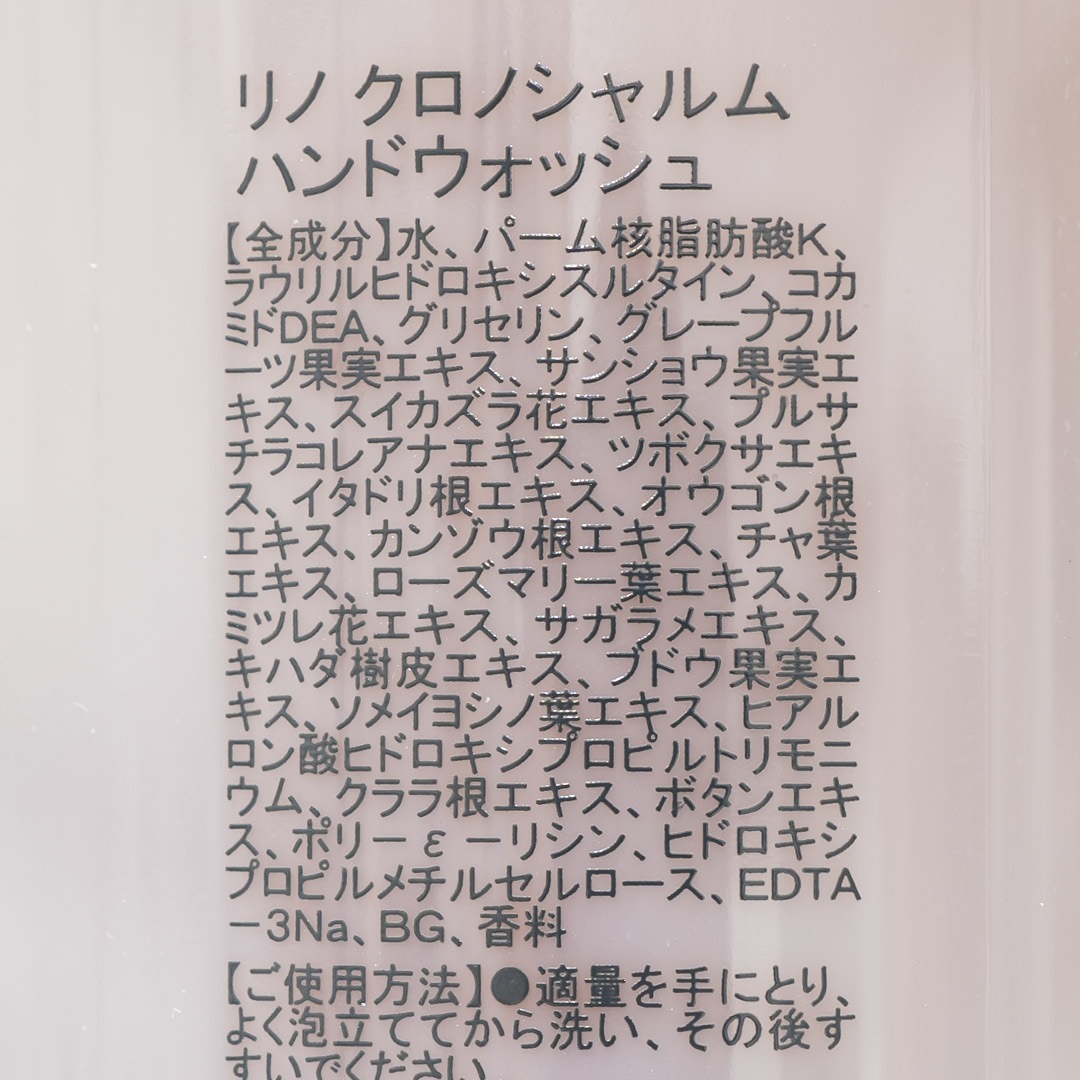 リノ クロノシャルム
ハンドウォッシュ
【全成分】水、パーム核脂肪酸K、
ラウリルヒドロキシスルタイン、コカ
ミドDEA、グリセリン、グレープフル
ーツ果実エキス、サンショウ果実エ
キス、スイカズラ花エキス、プルサ
チラコレアナエキス、ツボクサエキ
ス、イタドリ根エキス、オウゴン根
エキス、カンゾウ根エキス、チャ葉
エキス、ローズマリー葉エキス、カ
ミツレ花エキス、サガラメエキス、
キハダ樹皮エキス、ブドウ果実エ
キス、ソメイヨシノ葉エキス、ヒアル
ロン酸ヒドロキシプロピルトリモニ
ウム、クララ根エキス、ボタンエキ
ス、ポリーεーリシン、ヒドロキシ
プロピルメチルセルロース、EDTA
−3Na、BG、香料
【ご使用方法】●適量を手にとり、
よく泡立ててから洗い、その後す
すいでください